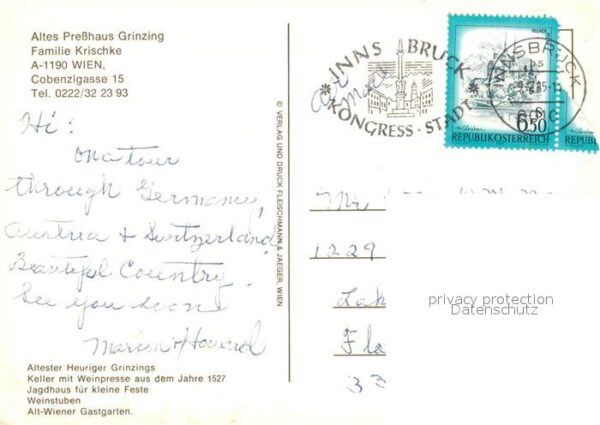 Altes Preßhaus Grinzing
Familie Krischke
A-1190 WIEN,
Cobenzlgasse 15
Tel. 0222/32 23 93
Hi:
On a tour
through Germany,
Austria + Switzerland
Beautiful Country
See you soon
Marion + Howard
Ältester Heuriger Grinzings
Keller mit Weinpresse aus dem Jahre 1527
Jagdhaus für kleine Feste
Weinstuben
Alt-Wiener Gastgarten.
© VERLAG UND DRUCK FLEISCHMANN & JAEGER, WIEN
Air Mail
INNSBRUCK
KONGRESS-STADT
INNSBRUCK
S 6.50
REPUBLIK ÖSTERREICH
REPUB
Mr
1229
Lak
Fla
33
privacy protection
Datenschutz